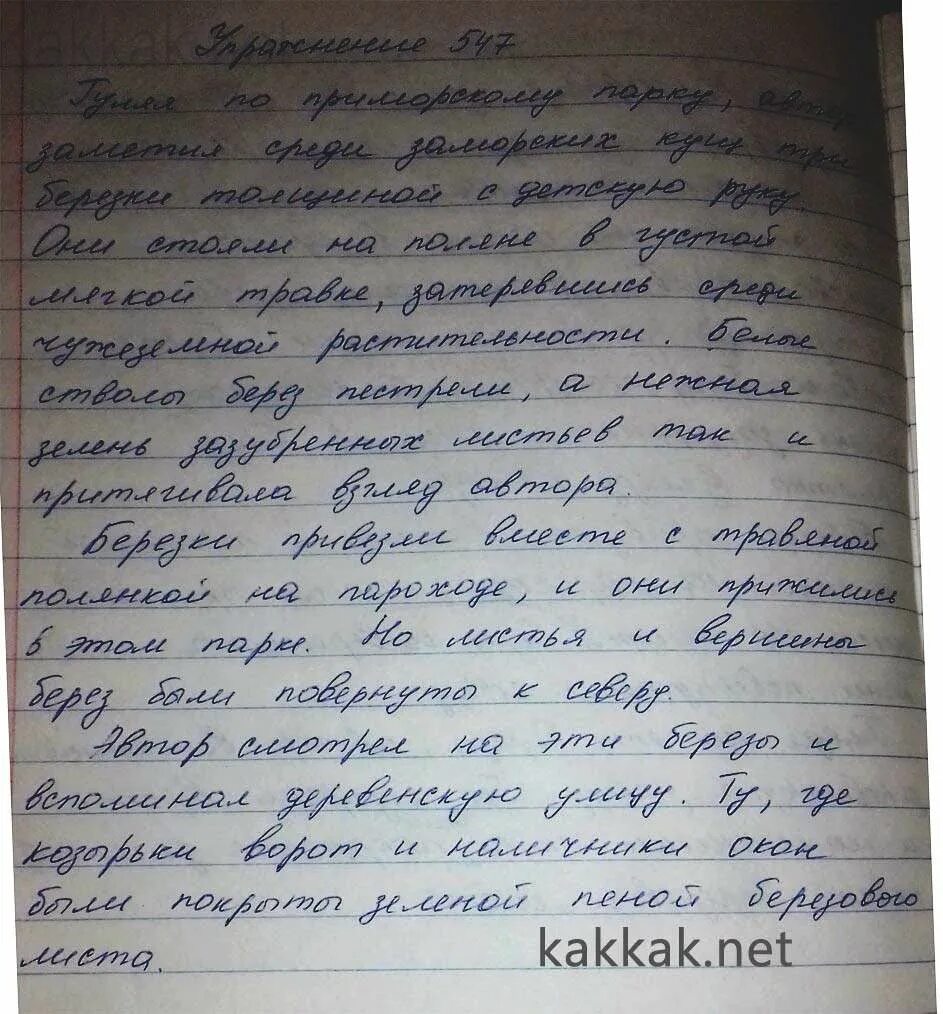 Упражнение 547
Гуляя по приморскому парку, автор
заметил среди заморских кущ три
березки толщиной с детскую руку.
Они стояли на поляне в густой
мягкой травке, затерявшись среди
чужеземной растительности. Белые
стволы берез пестрели, а нежная
зелень зазубренных листьев так и
притягивала взгляд автора.
Березки привезли вместе с травяной
полянкой на пароходе, и они прижились
в этом парке. Но листья и вершины
берез были повернуты к северу.
Автор смотрел на эти березы и
вспоминал деревенскую улицу. Ту, где
козырьки ворот и наличники окон
были покрыты зеленой пеной березового
листа.
kakkak.net